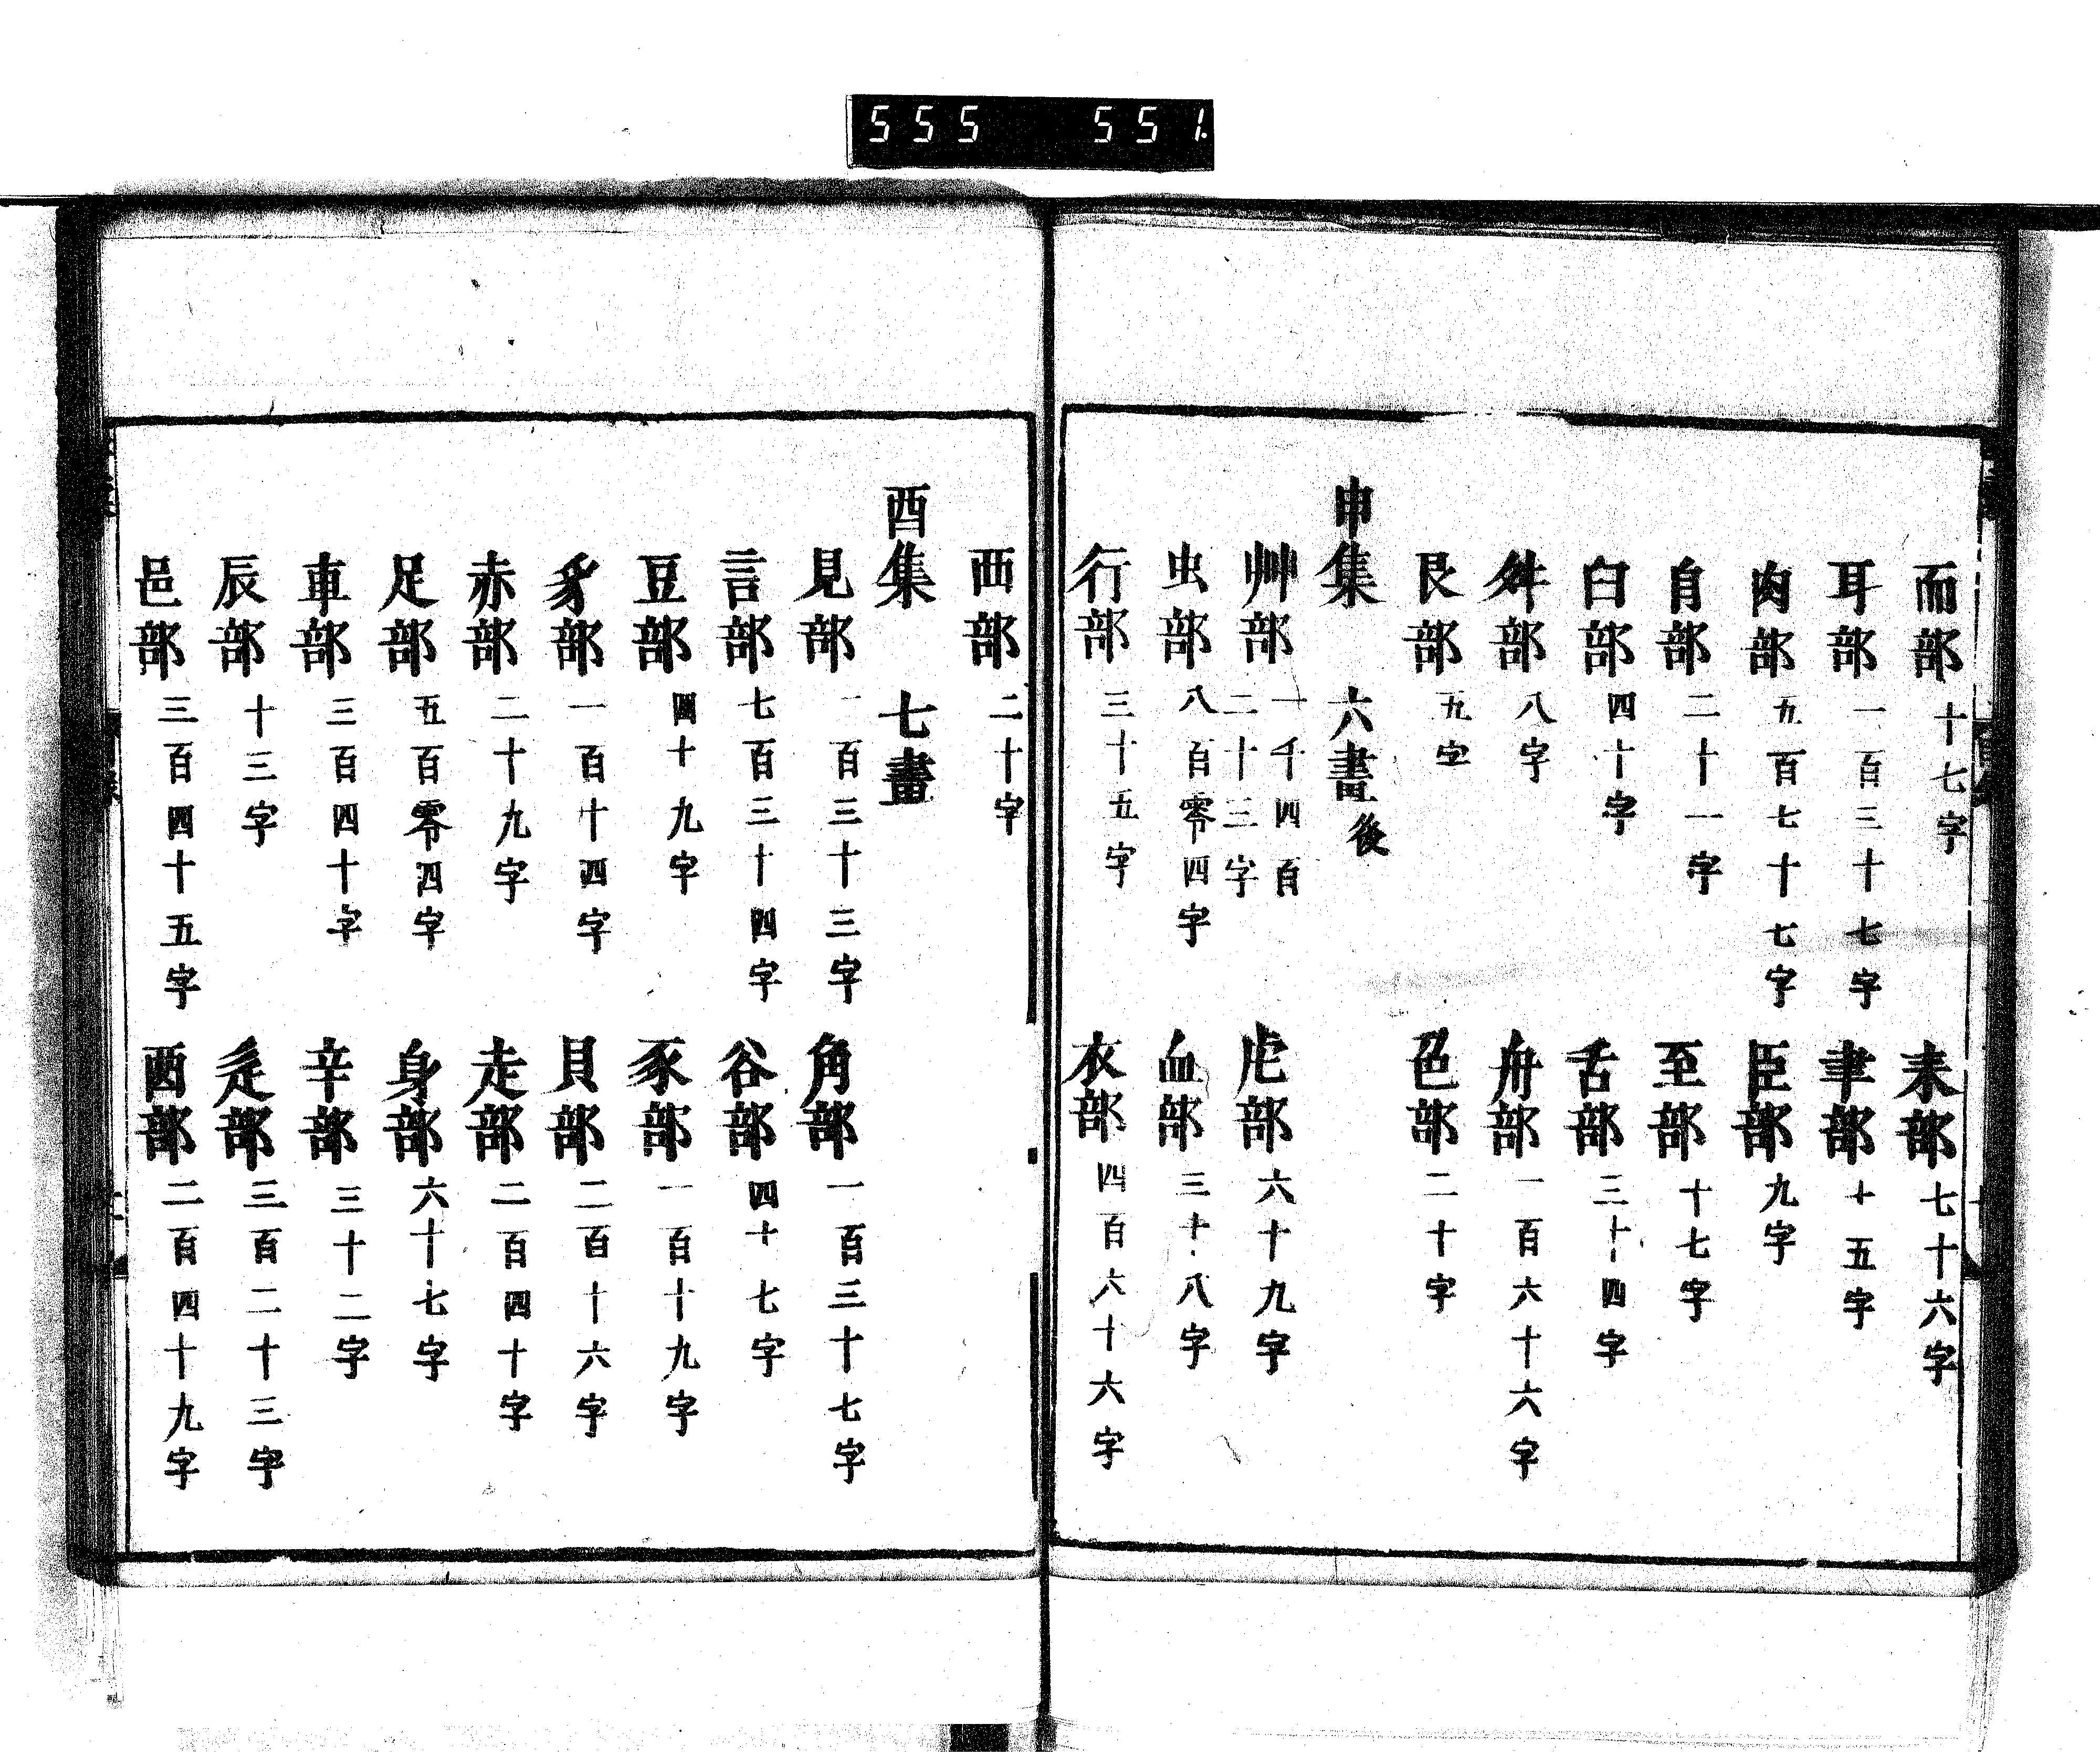 555 551
而部 十七字 耒部 七十六字
耳部 一百三十七字 聿部 十五字
肉部 九百七十七字 臣部 九字
自部 二十一字 至部 十七字
臼部 四十字 舌部 三十四字
舛部 八字 舟部 一百六十六字
艮部 九字 色部 二十字
申集 六畫後
艸部 一千四百二十三字 虍部 六十九字
虫部 八百零四字 血部 三十八字
行部 三十五字 衣部 四百六十六字
襾部 二十字
酉集 七畫
見部 一百三十三字 角部 一百三十七字
言部 七百三十四字 谷部 四十七字
豆部 四十九字 豕部 一百十九字
豸部 一百十四字 貝部 二百十六字
赤部 二十九字 走部 二百四十字
足部 五百零四字 身部 六十七字
車部 三百四十字 辛部 三十二字
辰部 十三字 辵部 三百二十三字
邑部 三百四十五字 酉部 二百四十九字